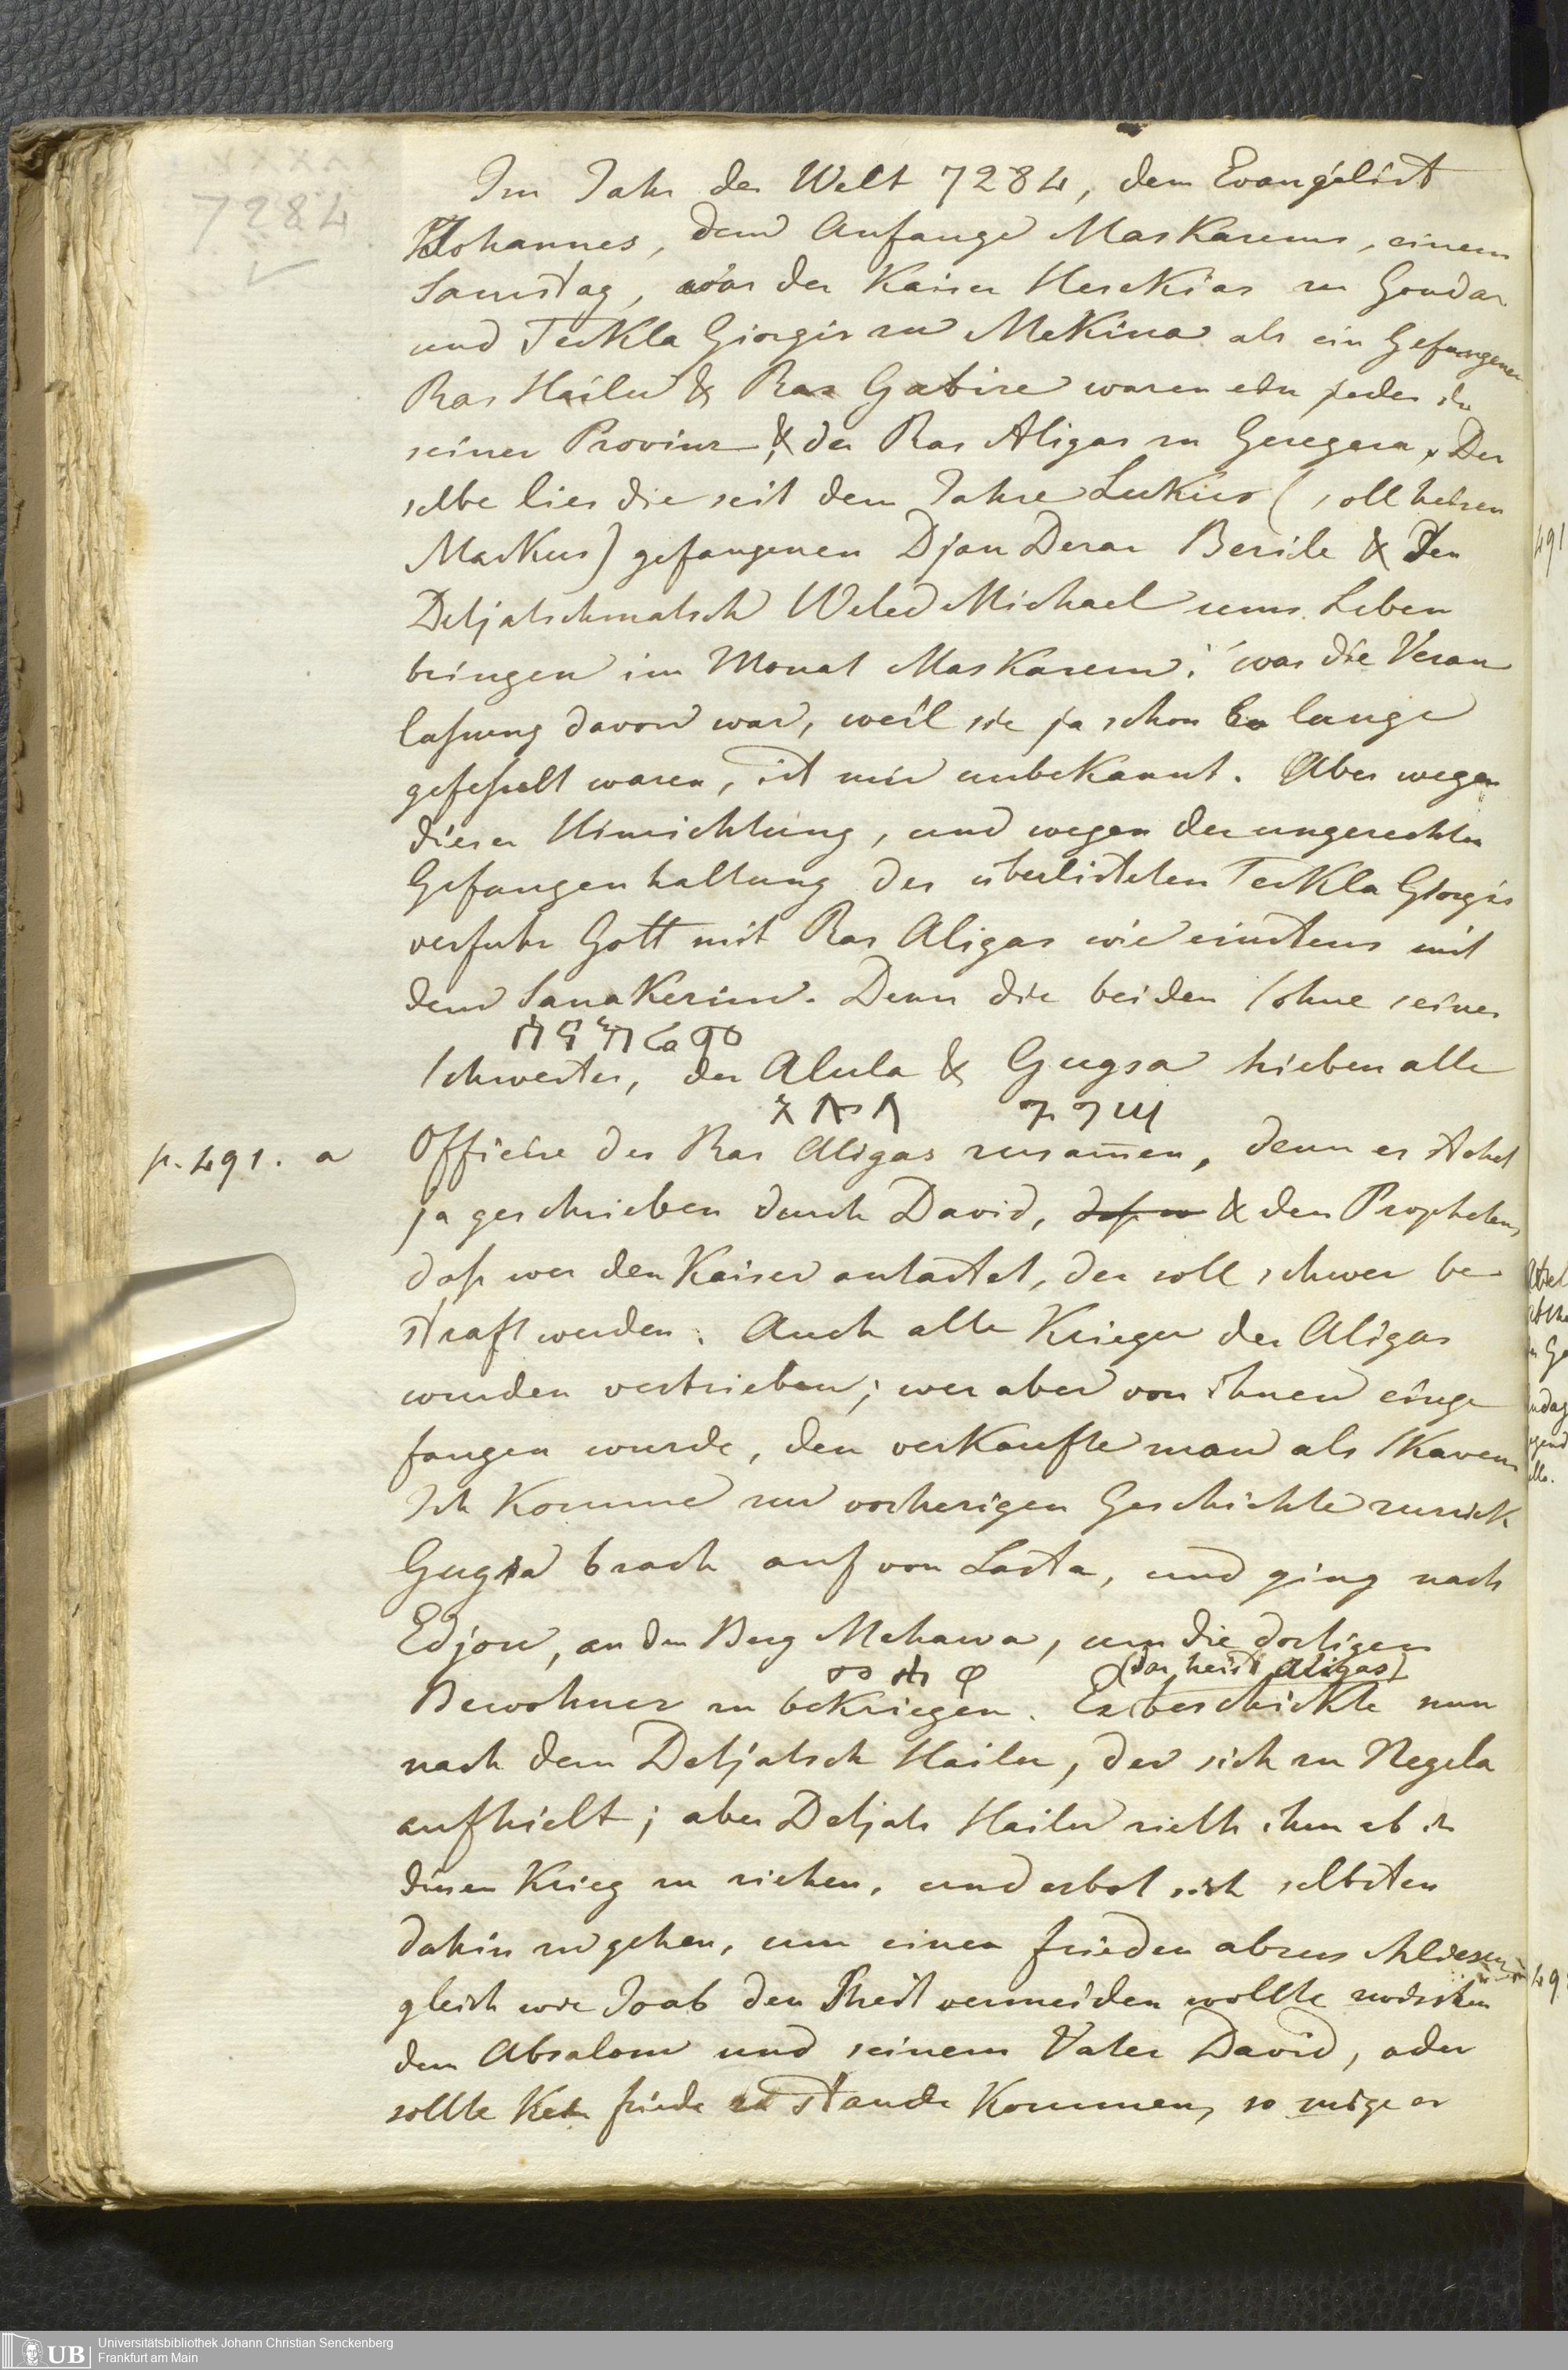 7284
Im Jahr der Welt 7284, dem Evangelist
Johannes, dem Anfange Maskarems, einem
Samstag, war der Kaiser Heskias zu Gondar
und Teckla Giorgis zu Mekina als ein Gefangener
Ras Hailu & Ras Gabire waren ein jeder in
seiner Provinz & der Ras Aligas zu Geregera. Der
selbe lies die seit dem Jahre Lukus (soll heisen
Markus) gefangenen Djan Derar Bersile & den
Detjatschmatsch Weled Michael ums Leben
bringen im Monat Maskarem; was die Veran
laßung davon war, weil sie ja schon lange
gefeßelt waren, ist mir unbekannt. Aber wegen
dieser Hinrichtung, und wegen der ungerechten
Gefangenhaltung des überlisteten Teckla Giorgis
verfuhr Gott mit Ras Aligas wie einstens mit
dem Sanakerim. Denn die beiden Sohne seiner
ሰናክሬም
Schwester, der Alula & Gugsa hieben alle
እሉላ ጉግሣ
p. 491. a Officire des Ras Aligas zusam̄en, denn es stehet
ja geschrieben durch David, & den Propheten,
daß wer den Kaiser antastet, der soll schwer be
straft werden. Auch alle Krieger des Aligas
wurden vertrieben; wer aber von ihnen einge
fangen wurde, den verkaufte man als Skaven
Ich komme zur vorherigen Geschichte zurück
Gugsa brach auf von Lasta, und ging nach
Edjou, an den Berg Mehawa, um die dortigen
(das heist Aligas)
Bewohner zu bekriegen. Er beschickte nun
nach dem Detjatsch Hailu, der sich zu Negela
aufhielt; aber Detjats Hailu rieth ihm ab in
diesen Krieg zu ziehen, und erbot sich selbsten
dahin zu gehen, um einen Frieden abzuschliesen
gleich wie Joab den Streit vermeiden wollte zwischen
dem Absalom und seinem Vater David, oder
sollte kein Friede zu Stande kommen, so möge er
Universitätsbibliothek Johann Christian Senckenberg
Frankfurt am Main
UB